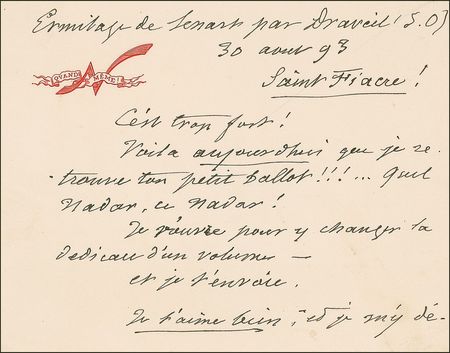 Ermitage de Senart par Draveil (S. O)
30 aout 93
QUAND MÊME!
Saint Fiacre !
C'est trop fort !
Voila aujourdhui que je re-
trouve ton petit ballot !!! ... Quel
Nadar, ce Nadar !
Je r'ouvre pour y changer la
dedicace d'un volume —
et je t'envoie.
Je t'aime bien, et je m'y dé-